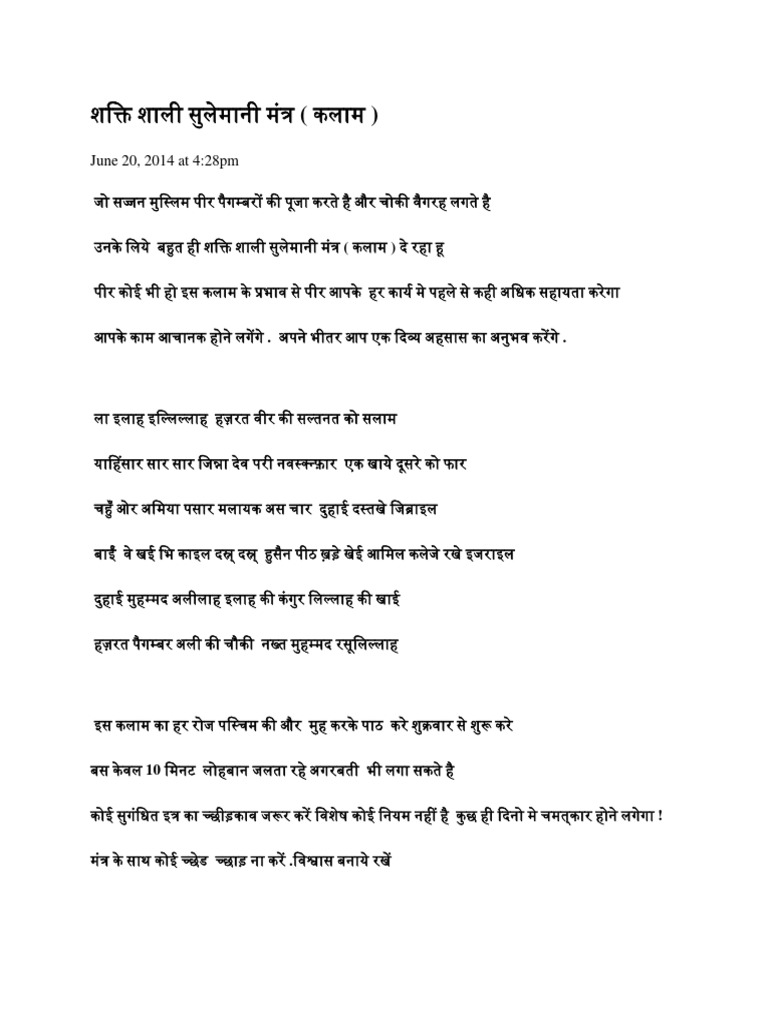 शक्ति शाली सुलेमानी मंत्र ( कलाम )
June 20, 2014 at 4:28pm
जो सज्जन मुस्लिम पीर पैगम्बरों की पूजा करते है और चोकी वैगरह लगते है
उनके लिये बहुत ही शक्ति शाली सुलेमानी मंत्र ( कलाम ) दे रहा हू
पीर कोई भी हो इस कलाम के प्रभाव से पीर आपके हर कार्य मे पहले से कही अधिक सहायता करेगा
आपके काम आचानक होने लगेंगे . अपने भीतर आप एक दिव्य अहसास का अनुभव करेंगे .
ला इलाह इल्लिल्लाह हज़रत वीर की सल्तनत को सलाम
याहिंसार सार सार जिन्ना देव परी नवस्क्फ़ार एक खाये दूसरे को फार
चहुँ ओर अमिया पसार मलायक अस चार दुहाई दस्तखे जिब्राइल
बाईं वे खई भि काइल दस्न् दस्न् हुसैन पीठ ख़ड़े खेई आमिल कलेजे रखे इजराइल
दुहाई मुहम्मद अलीलाह इलाह की कंगुर लिल्लाह की खाई
हज़रत पैगम्बर अली की चौकी नख्त मुहम्मद रसूलिल्लाह
इस कलाम का हर रोज पस्चिम की और मुह करके पाठ करे शुक्रवार से शुरू करे
बस केवल 10 मिनट लोहबान जलता रहे अगरबती भी लगा सकते है
कोई सुगंधित इत्र का च्छीड़काव जरूर करें विशेष कोई नियम नहीं है कुछ ही दिनो मे चमत्कार होने लगेगा !
मंत्र के साथ कोई च्छेड च्छाड़ ना करें .विश्वास बनाये रखें